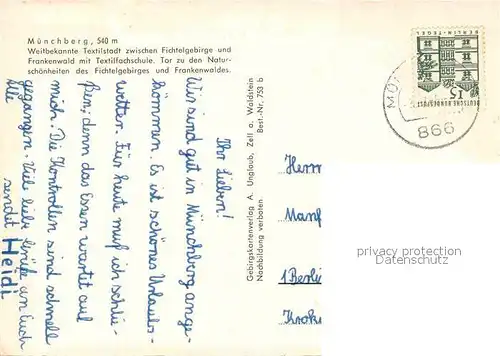 Münchberg, 540 m
Weitbekannte Textilstadt zwischen Fichtelgebirge und
Frankenwald mit Textilfachschule. Tor zu den Natur-
schönheiten des Fichtelgebirges und Frankenwaldes.
Ihr Lieben!
Wir sind gut in Münchberg ange-
kommen. Es ist schönes Urlaubs-
wetter. Für heute muß ich schlie-
ßen, denn das Essen wartet auf
mich. Die Kontrollen sind schnell
gegangen. Viele liebe Grüße an Euch
Alle
sendet Heidi
Gebirgskartenverlag A. Unglaub, Zell a. Waldstein
Nachbildung verboten. Best.-Nr. 753 b
Herrn
Manf
1 Berli
Krok
BERLIN-TEGEL
15
DEUTSCHE BUNDESPOST
MÜ
866
privacy protection
Datenschutz